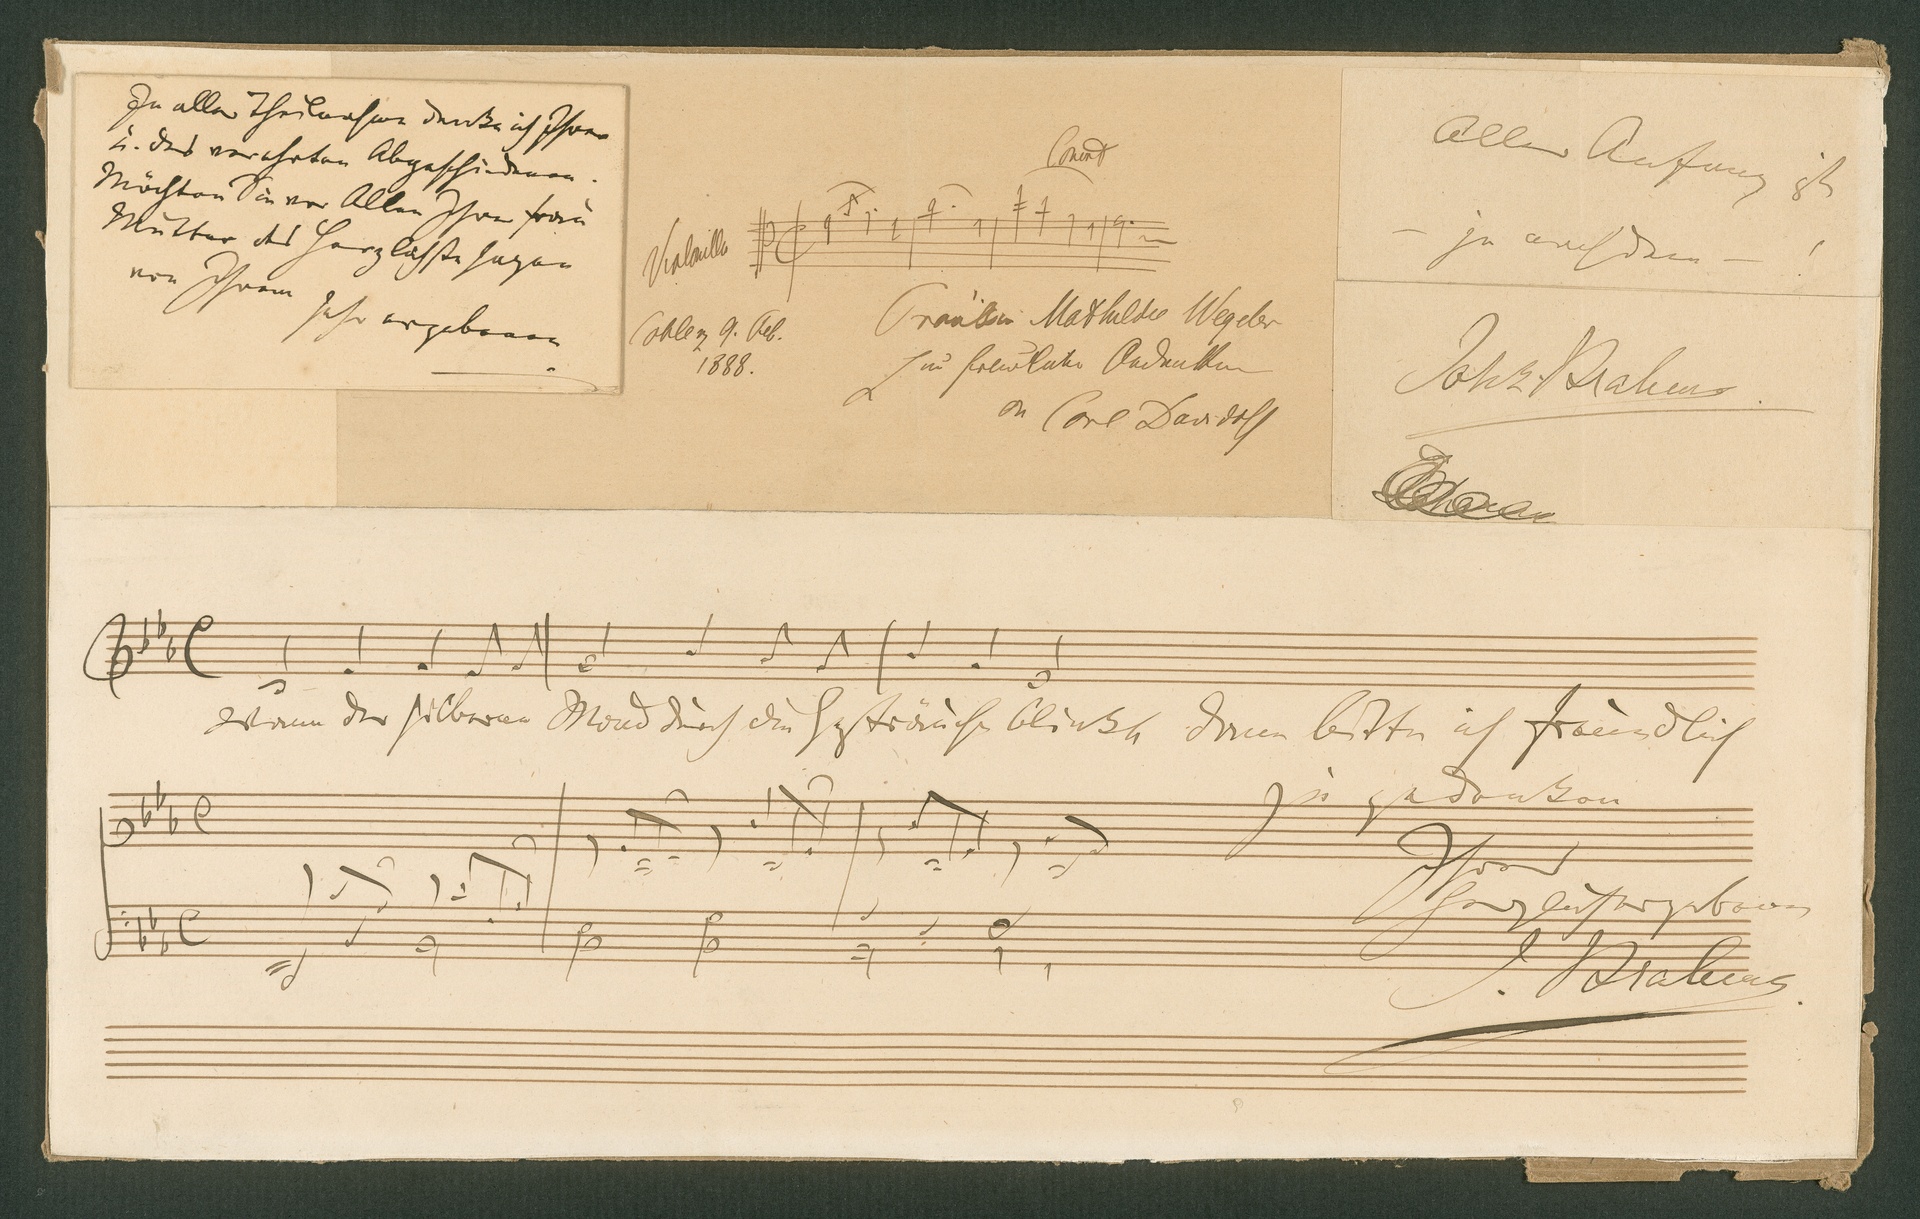 In aller Theilnahme denke ich Ihrer
u. des verehrten Abgeschiedenen.
Möchten Sie vor Allen Ihrer Frau
Mutter das Herzlichste sagen
von Ihrem
sehr ergebenen
Violoncello
Coblenz 9. Feb.
1888.
Fräulein Mathilde Wegeler
zur freundlichen
Carl Davidoff
Aller Anfang ist
Joh. Brahms.
Wann der silberne Mond durch die Gesträuche blinkt, dann bitte ich freundlich
zu gedenken
Ihres
herzlich ergebenen
J. Brahms.